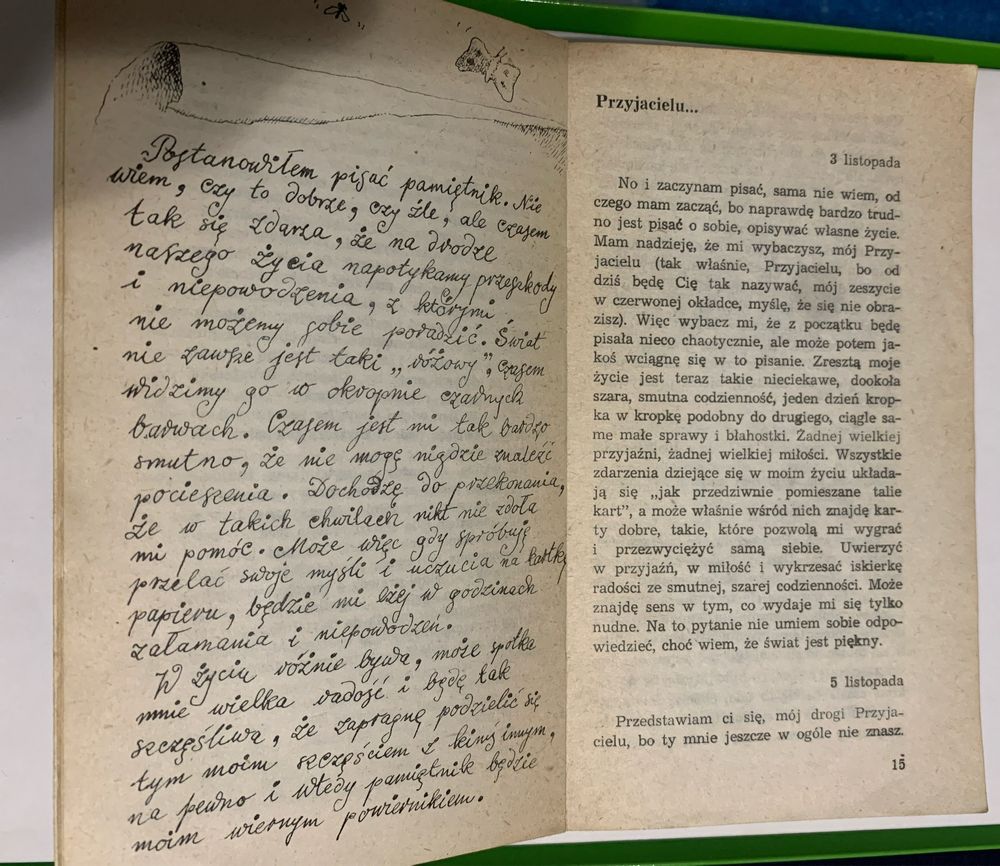 Postanowiłem pisać pamiętnik. Nie
wiem, czy to dobrze, czy źle, ale czasem
tak się zdarza, że na drodze
naszego życia napotykamy przeszkody
i niepowodzenia, z którymi
nie możemy sobie poradzić. Świat
nie zawsze jest taki „różowy”, czasem
widzimy go w okropnie czarnych
barwach. Czasem jest mi tak bardzo
smutno, że nie mogę nigdzie znaleźć
pocieszenia. Dochodzę do przekonania,
że w takich chwilach nikt nie zdoła
mi pomóc. Może więc gdy spróbuję
przelać swoje myśli i uczucia na kartkę
papieru, będzie mi lżej w godzinach
załamania i niepowodzeń.
W życiu różnie bywa, może spotka
mnie wielka radość i będę tak
szczęśliwa, że zapragnę podzielić się
tym moim szczęściem z kimś innym,
na pewno i wtedy pamiętnik będzie
moim wiernym powiernikiem.
Przyjacielu...
3 listopada
No i zaczynam pisać, sama nie wiem, od
czego mam zacząć, bo naprawdę bardzo trud-
no jest pisać o sobie, opisywać własne życie.
Mam nadzieję, że mi wybaczysz, mój Przy-
jacielu (tak właśnie, Przyjacielu, bo od
dziś będę Cię tak nazywać, mój zeszycie
w czerwonej okładce, myślę, że się nie obra-
zisz). Więc wybacz mi, że z początku będę
pisała nieco chaotycznie, ale może potem ja-
koś wciągnę się w to pisanie. Zresztą moje
życie jest teraz takie nieciekawe, dookoła
szara, smutna codzienność, jeden dzień krop-
ka w kropkę podobny do drugiego, ciągle sa-
me małe sprawy i błahostki. Żadnej wielkiej
przyjaźni, żadnej wielkiej miłości. Wszystkie
zdarzenia dziejące się w moim życiu układa-
ją się „jak przedziwnie pomieszane talie
kart”, a może właśnie wśród nich znajdę kar-
ty dobre, takie, które pozwolą mi wygrać
i przezwyciężyć samą siebie. Uwierzyć
w przyjaźń, w miłość i wykrzesać iskierkę
radości ze smutnej, szarej codzienności. Może
znajdę sens w tym, co wydaje mi się tylko
nudne. Na to pytanie nie umiem sobie odpo-
wiedzieć, choć wiem, że świat jest piękny.
5 listopada
Przedstawiam ci się, mój drogi Przyja-
cielu, bo ty mnie jeszcze w ogóle nie znasz.
15